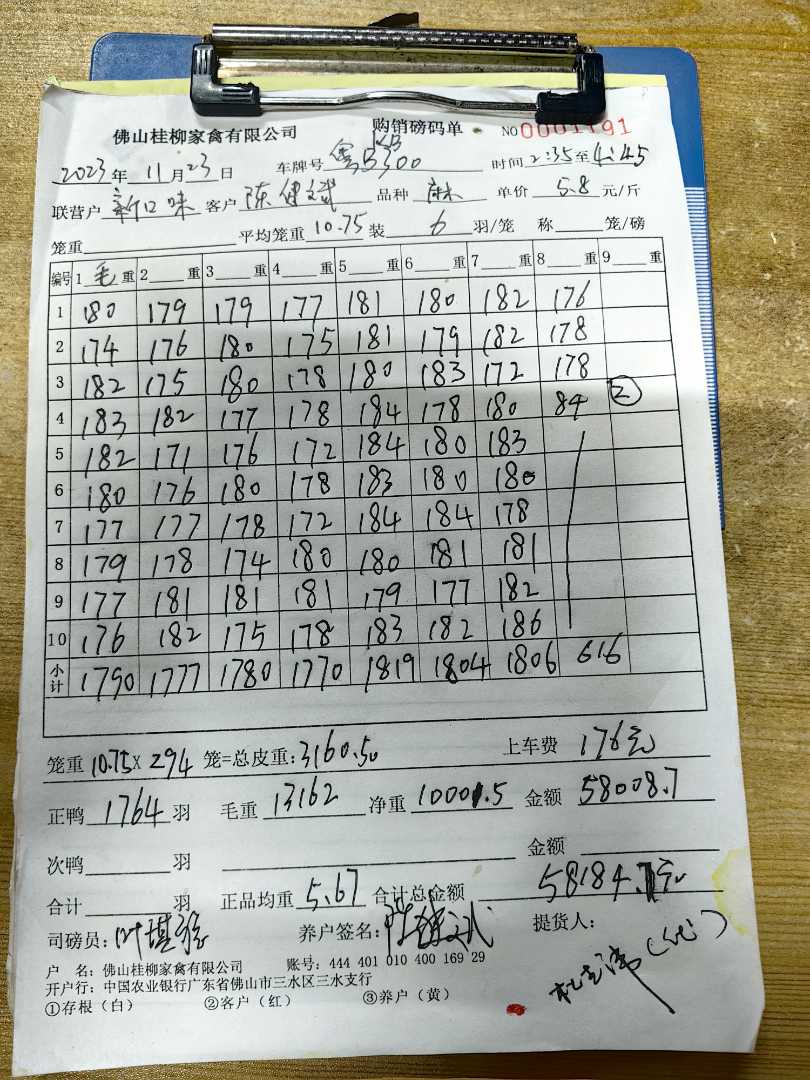 佛山桂柳家禽有限公司 购销磅码单 NO 0001191
2023年 11月23日 车牌号 粤B300 KB 时间 2:35至4:45
联营户 新口味 客户 陈健文武 品种 麻 单价 5.8 元/斤
笼重 平均笼重 10.75 装 6 羽/笼 称 笼/磅
编号 1 毛 重 2 重 3 重 4 重 5 重 6 重 7 重 8 重 9 重
1 180 179 179 177 181 180 182 176
2 174 176 180 175 181 179 182 178
3 182 175 180 178 180 183 172 178
4 183 182 177 178 184 178 180 84 ②
5 182 171 176 172 184 180 183
6 180 176 180 178 183 180 180
7 177 177 178 172 184 184 178
8 179 178 174 180 180 181 181
9 177 181 181 181 179 177 182
10 176 182 175 178 183 182 186
小计 1790 1777 1780 1770 1819 1804 1806 616
笼重 10.75× 294 笼=总皮重: 3160.50 上车费 176元
正鸭 1764 羽 毛重 13162 净重 10001.5 金额 58008.7
次鸭 羽 金额
合计 羽 正品均重 5.67 合计总金额 58184.7元
司磅员: 叶琪 养户签名: 提货人:
(代)
户 名: 佛山桂柳家禽有限公司 账号: 444 401 010 400 169 29
开户行: 中国农业银行广东省佛山市三水区三水支行
①存根(白) ②客户(红) ③养户(黄)